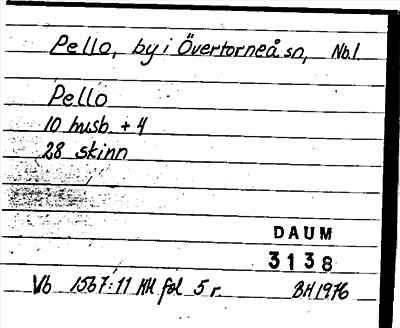 Pello, by i Övertorneå sn, Nbl.
Pello
10 husb. + 4
28 skinn
DAUM
3138
Vb 1567:11 MH fol 5 r. BH 1976